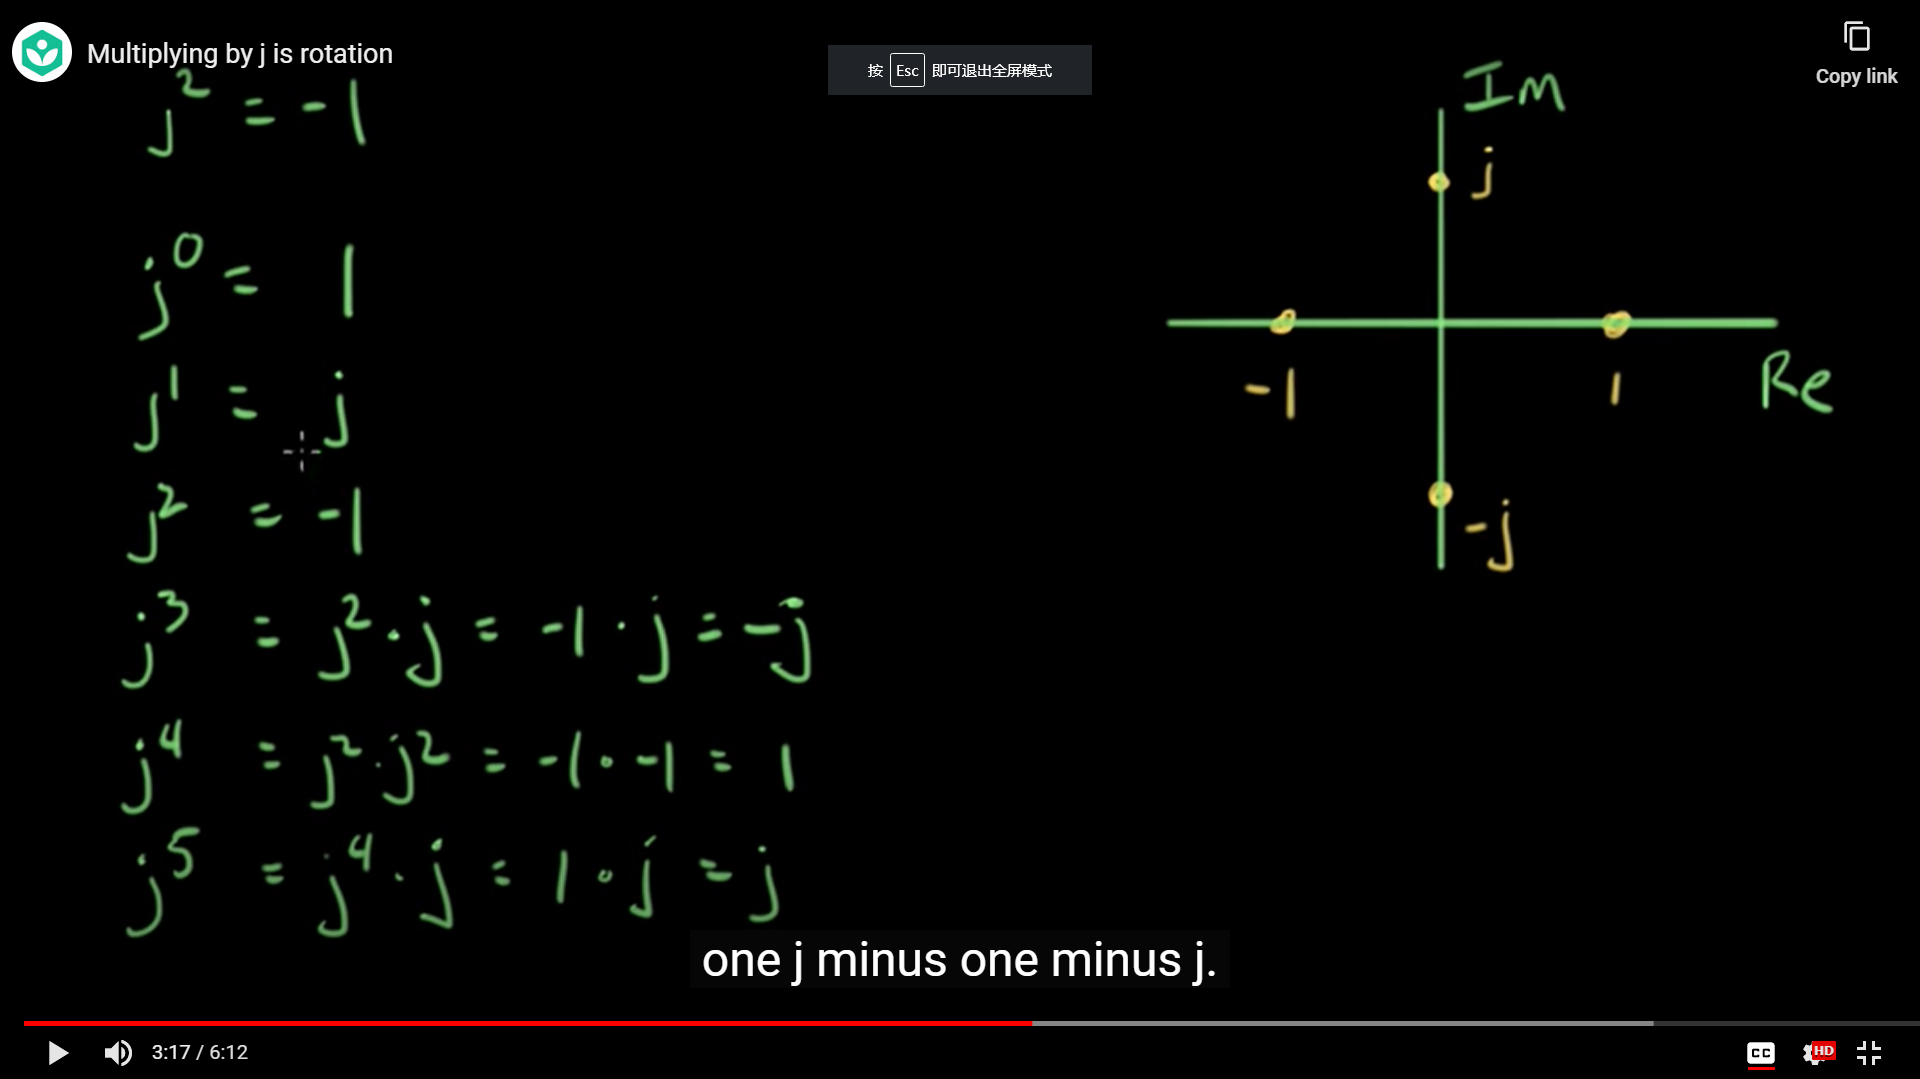 Multiplying by j is rotation
按 Esc 即可退出全屏模式
Copy link
j² = -1
j⁰ = 1
j¹ = j
j² = -1
j³ = j² · j = -1 · j = -j
j⁴ = j² · j² = -1 · -1 = 1
j⁵ = j⁴ · j = 1 · j = j
Im
j
-1
1
Re
-j
one j minus one minus j.
3:17 / 6:12
CC
HD